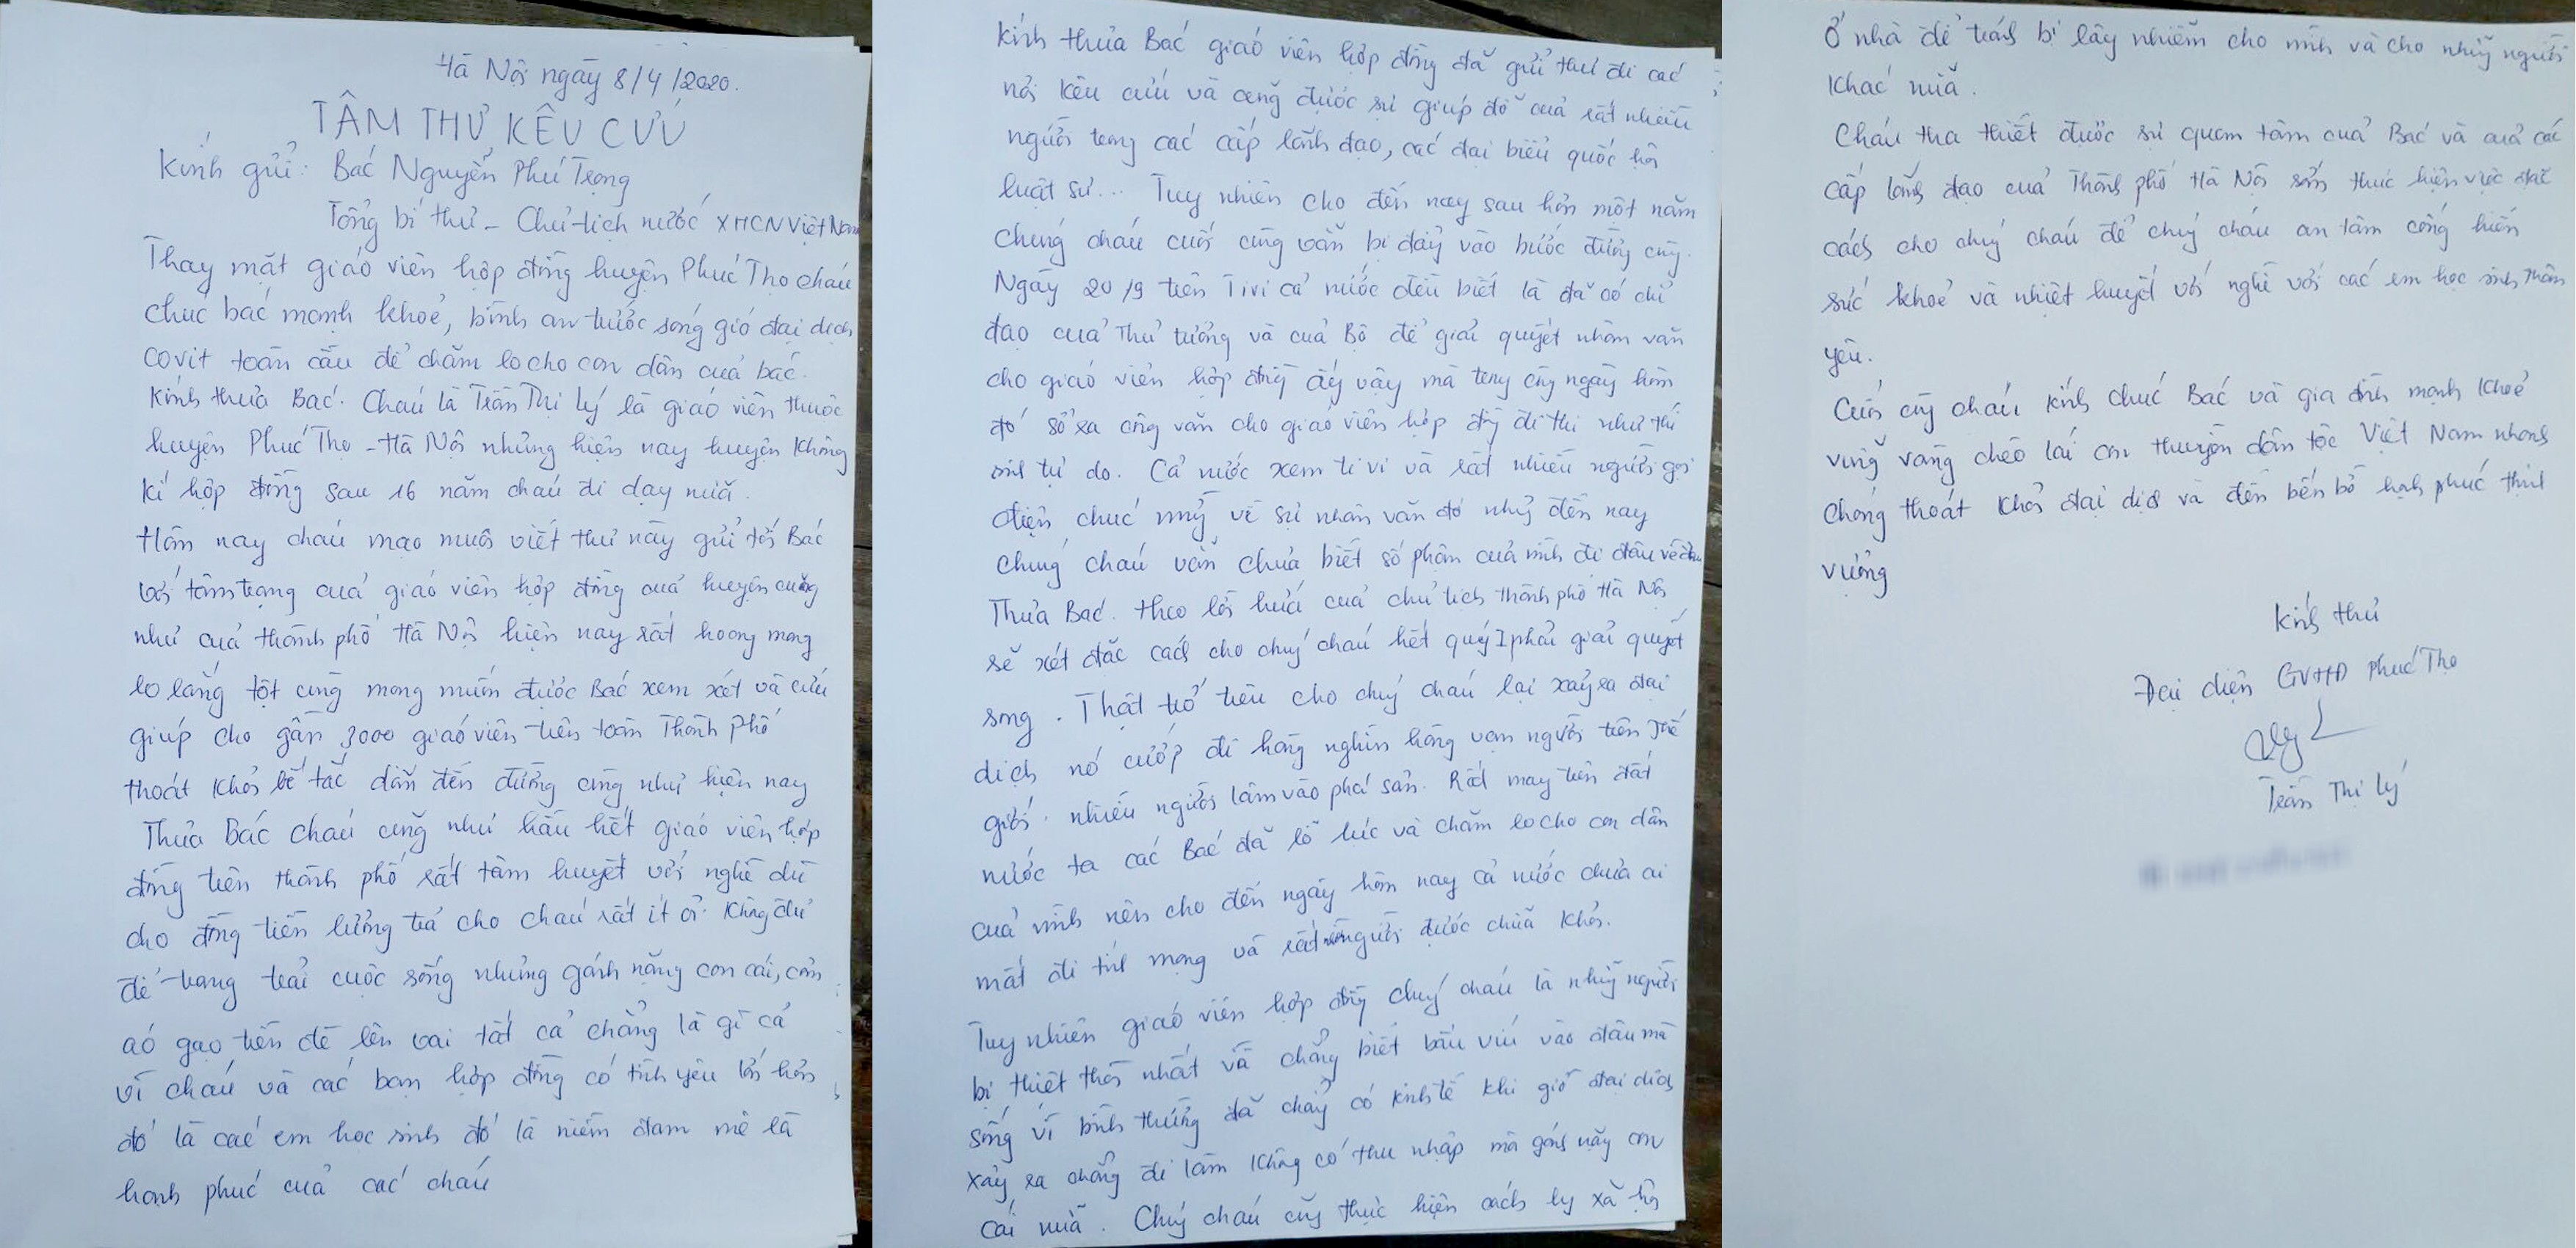 Hà Nội ngày 8/4/2020.
TÂM THƯ KÊU CỨU
Kính gửi: Bác Nguyễn Phú Trọng
Tổng bí thư - Chủ tịch nước XHCN Việt Nam
Thay mặt giáo viên hợp đồng huyện Phúc Thọ cháu
chúc bác mạnh khoẻ, bình an trước sóng gió đại dịch
covit toàn cầu để chăm lo cho con dân của bác.
Kính thưa Bác. Cháu là Trần Thị Lý là giáo viên thuộc
huyện Phúc Thọ - Hà Nội nhưng hiện nay huyện không
kí hợp đồng sau 16 năm cháu đi dạy nữa.
Hôm nay cháu mạo muội viết thư này gửi tới Bác
với tâm trạng của giáo viên hợp đồng của huyện cũng
như của thành phố Hà Nội hiện nay rất hoang mang
lo lắng tột cùng mong muốn được Bác xem xét và cứu
giúp cho gần 3000 giáo viên trên toàn Thành Phố
thoát khỏi bế tắc dẫn đến đường cùng như hiện nay
Thưa Bác cháu cũng như hầu hết giáo viên hợp
đồng trên thành phố rất tâm huyết với nghề dù
cho đồng tiền lương trả cho cháu rất ít ỏi. Không đủ
để trang trải cuộc sống nhưng gánh nặng con cái, cơm
áo gạo tiền đè lên vai tất cả chẳng là gì cả
vì cháu và các bạn hợp đồng có tình yêu lớn hơn
đó là các em học sinh đó là niềm đam mê là
hạnh phúc của các cháu
Kính thưa Bác giáo viên hợp đồng đã gửi thư đi các
nơi kêu cứu và cũng được sự giúp đỡ của rất nhiều
người trong các cấp lãnh đạo, các đại biểu quốc hội
luật sư... Tuy nhiên cho đến nay sau hơn một năm
chúng cháu cuối cùng vẫn bị đẩy vào bước đường cùng.
Ngày 20/9 trên Tivi cả nước đều biết là đã có chỉ
đạo của Thủ tướng và của Bộ để giải quyết nhân văn
cho giáo viên hợp đồng ấy vậy mà trong cùng ngày hôm
đó sở ra công văn cho giáo viên hợp đồng đi thi như thí
sinh tự do. Cả nước xem ti vi và rất nhiều người gọi
điện chúc mừng về sự nhân văn đó nhưng đến nay
chúng cháu vẫn chưa biết số phận của mình đi đâu về đâu
Thưa Bác. theo lời hứa của chủ tịch thành phố Hà Nội
sẽ xét đặc cách cho chúng cháu hết quý I phải giải quyết
song. Thật trớ trêu cho chúng cháu lại xảy ra đại
dịch nó cướp đi hàng nghìn hàng vạn người trên thế
giới. nhiều người lâm vào phá sản. Rất may trên đất
nước ta các Bác đã lỗ lực và chăm lo cho con dân
của mình nên cho đến ngày hôm nay cả nước chưa ai
mất đi tính mạng và rất người được chữa khỏi.
Tuy nhiên giáo viên hợp đồng chúng cháu là những người
bị thiệt thòi nhất và chẳng biết bấu víu vào đâu mà
sống vì bình thường đã chẳng có kinh tế khi giờ đại dịch
xảy ra chẳng đi làm không có thu nhập mà gánh nặng con
cái nữa. Chúng cháu cũng thực hiện cách ly xã hội
Ở nhà để tránh bị lây nhiễm cho mình và cho những người
khác nữa.
Cháu tha thiết được sự quan tâm của Bác và của các
cấp lãnh đạo của Thành phố Hà Nội sớm thực hiện việc đặc
cách cho chúng cháu để chúng cháu an tâm cống hiến
sức khoẻ và nhiệt huyết với nghề với các em học sinh thân
yêu.
Cuối cùng cháu kính chúc Bác và gia đình mạnh khoẻ
vững vàng chèo lái con thuyền dân tộc Việt Nam nhanh
chóng thoát khỏi đại dịch và đến bến bờ hạnh phúc thịnh
vượng
Kính thư
Đại diện GVHĐ Phúc Thọ
Trần Thị Lý